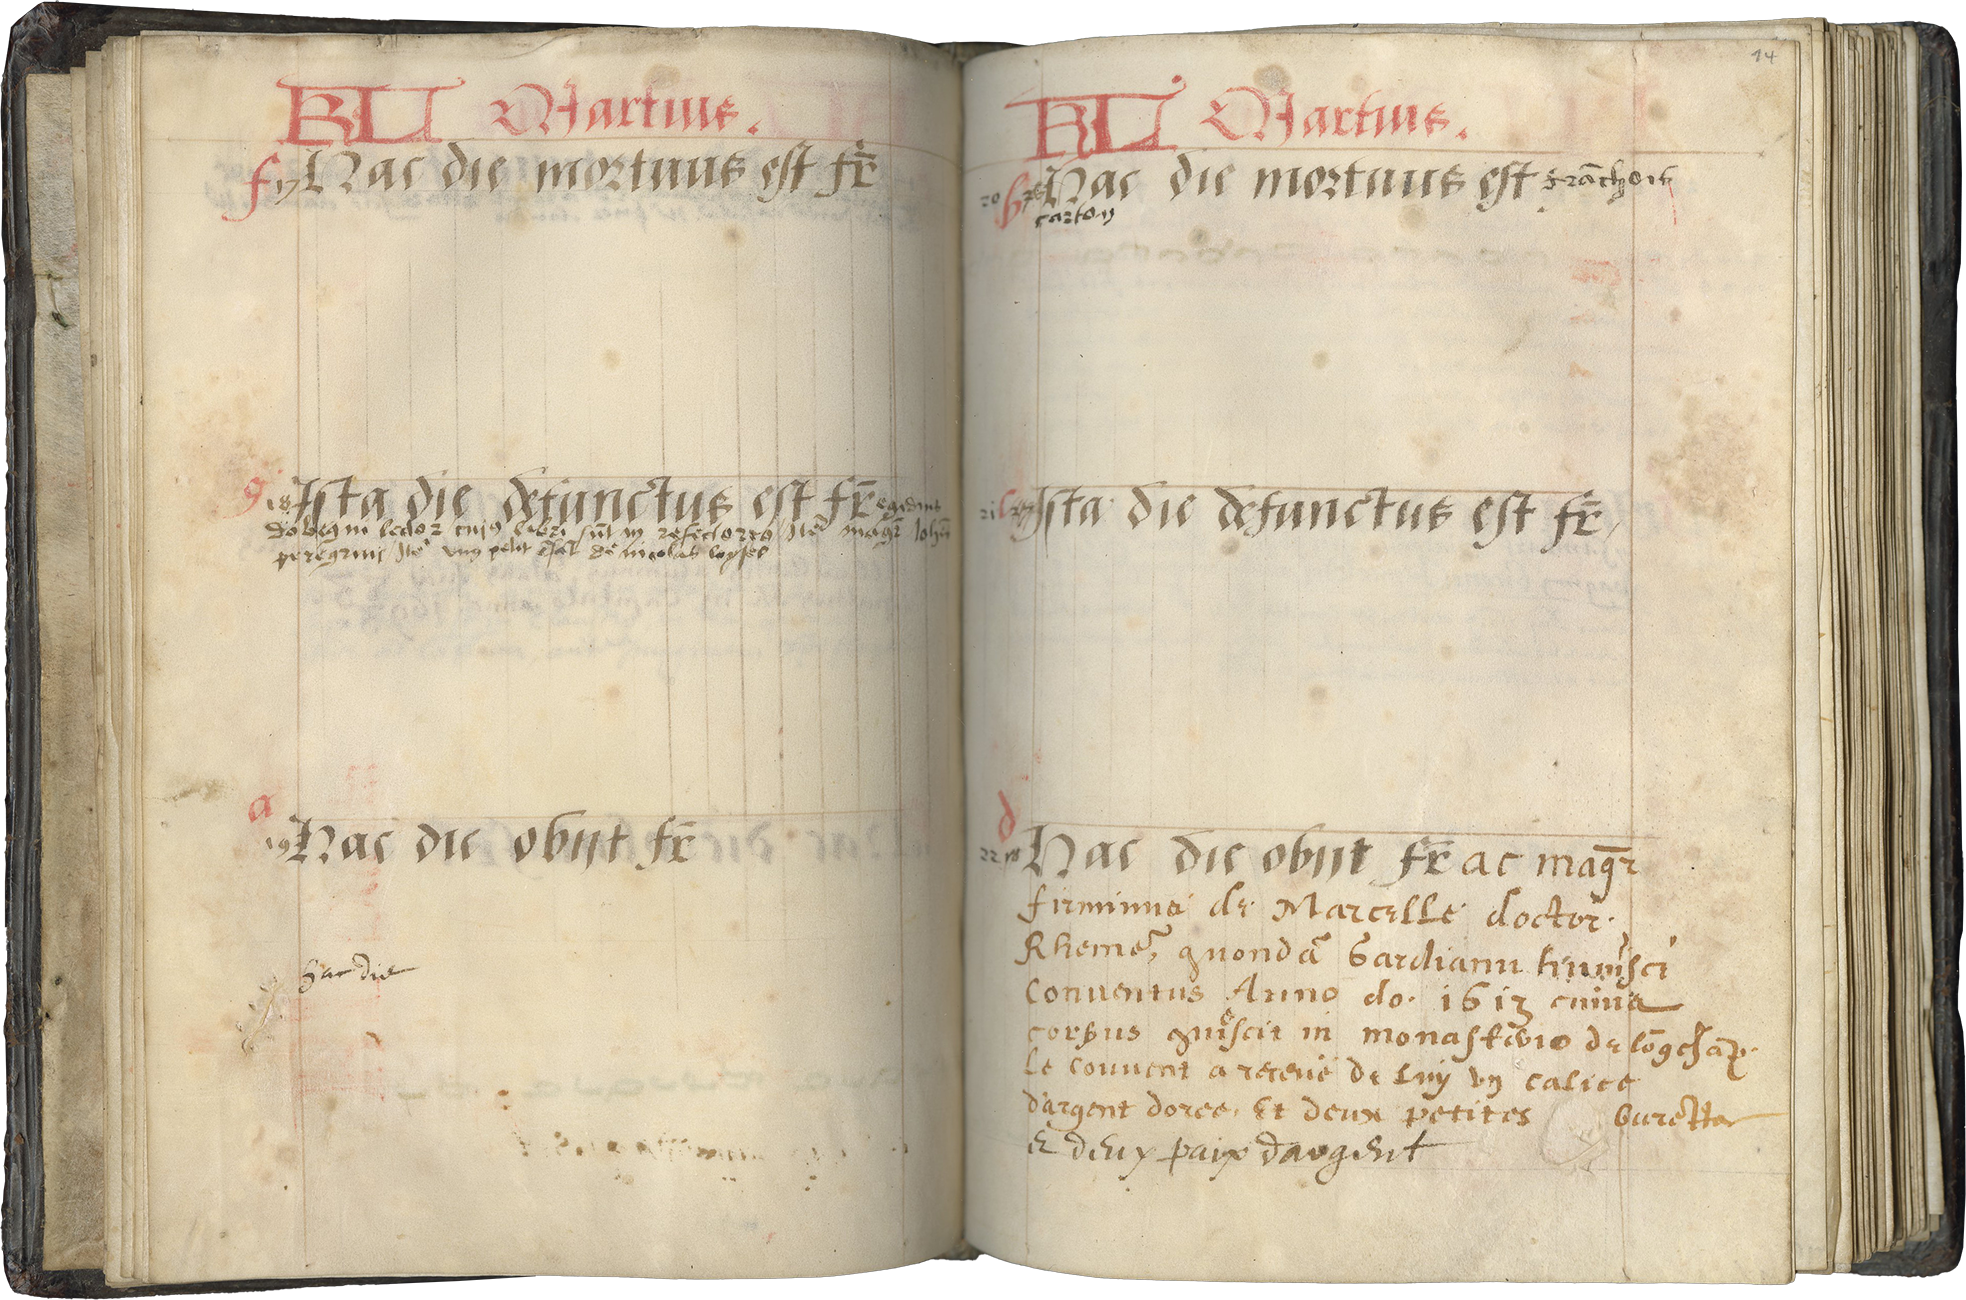 KL Martius.
f 17 Hac die mortuus est fr̄
g 18 Ista die defunctus est fr̄ egidius
lector cujꝰ libri sūt in refectorio Itē magr̄ Johēs
peregrini Itē ung petit de nicolas loysel
a 19 Hac die obijt fr̄
hac die
14
KL Martius.
20 b Hac die mortuus est frāchois
carton
21 c Ista die defunctus est fr̄
d
22 Hac die obijt fr̄ ac magr̄
firminus de Marcelle doctor
Rheme, quondā Gardianu huiusci
Conuentus Anno do. 1613 cuius
corpus quiescit in monastērio de lōgchāp.
Le couuent a receuë de luy vn calice
d'argent doree. Et deux petites burette
& deux paix dargent